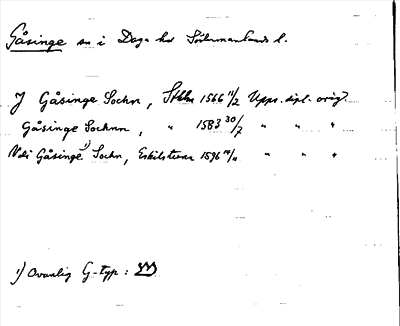 Gåsinge sn i Daga hd Södermanlands l.
J Gåsinge Sochn, Sthlm 1566 11/2 Upps. dipl. orig.
Gåsinge Sochnn, " 1583 30/7 " " "
Gåsinge 1) Sochn, Eskilstuna 1596 " " "
1) Ovanlig G-typ: